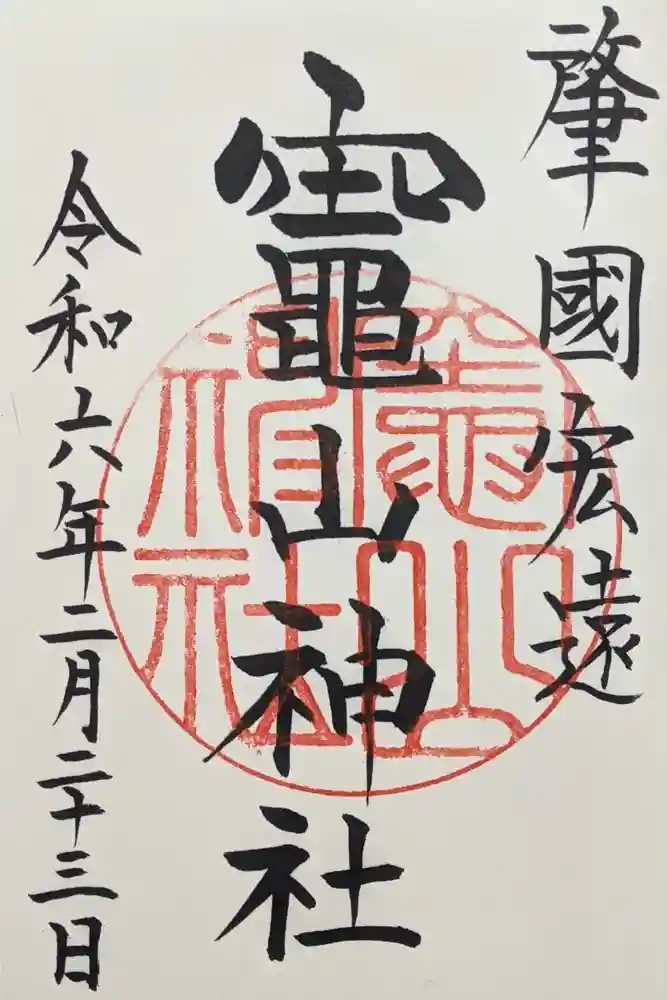 肇國宏遠
竈山神社
令和六年二月二十三日